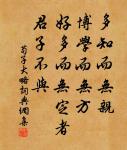 多知而無親
博學而無方
好多而無定者
君子不與
荀子大略詞典網集